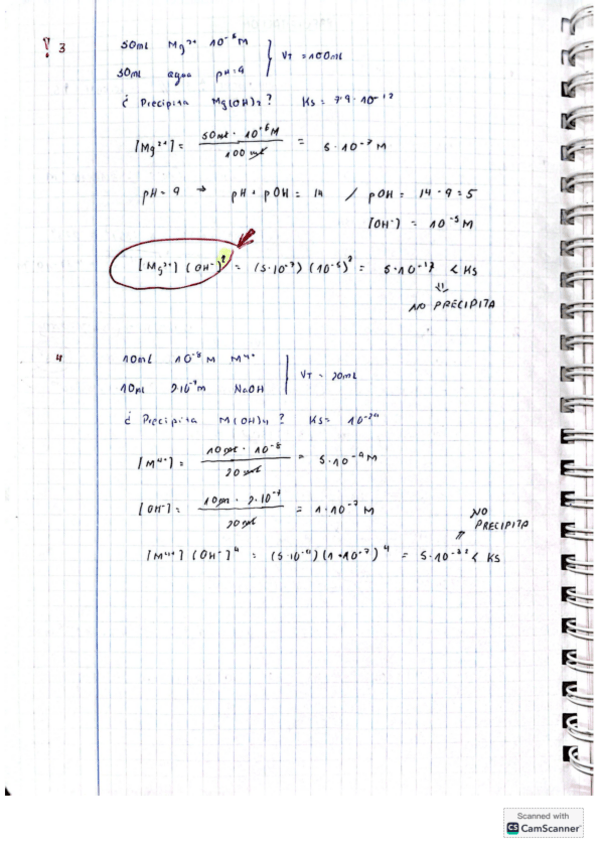 ! 3
50ml Mg²⁺ 10⁻⁶ M
50ml agua pH=9
VT = 100ml
¿ Precipita Mg(OH)₂ ? Ks =
[Mg²⁺] = 50ml · 10⁻⁶M / 100 ml = 5·10⁻⁷ M
pH = 9 → pH + pOH = 14 / pOH = 14 - 9 = 5
[OH⁻] = 10⁻⁵ M
[Mg²⁺] (OH⁻)² = (5·10⁻⁷) (10⁻⁵)² = 5·10⁻¹⁷ < KS
NO PRECIPITA
4
10ml 10⁻⁸ M M⁴⁺
10ml 2·10⁻⁷ M NaOH
VT = 20ml
¿ Precipita M(OH)₄ ? KS =
[M⁴⁺] = 10ml · 10⁻⁸ / 20 ml = 5·10⁻⁹ M
[OH⁻] = 10ml · 2·10⁻⁷ / 20ml = 1·10⁻⁷ M
NO PRECIPITA
[M⁴⁺] (OH⁻)⁴ = (5·10⁻⁹) (1·10⁻⁷)⁴ = < KS
Scanned with
CS CamScanner